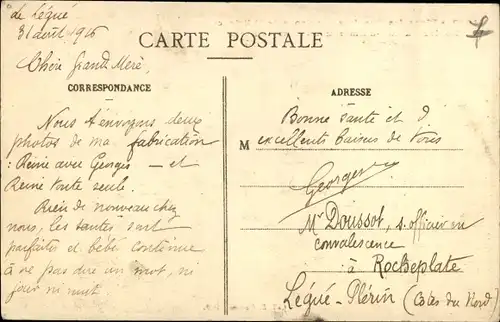 de Légué
31 août 1916
CARTE POSTALE
Chère Grand Mère,
CORRESPONDANCE
Nous t'envoyons deux
photos de ma fabrication
: Reine avec Georges — et
Reine toute seule.
Rien de nouveau chez
nous, les santés sont
parfaites et bébé continue
à ne pas dire un mot, ni
jour ni nuit
ADRESSE
Bonne santé et
M excellents baisers de tous
Georges
Mr Doussot, s. officier en
convalescence
à Rocheplate
Légué-Plérin (Côtes du Nord)